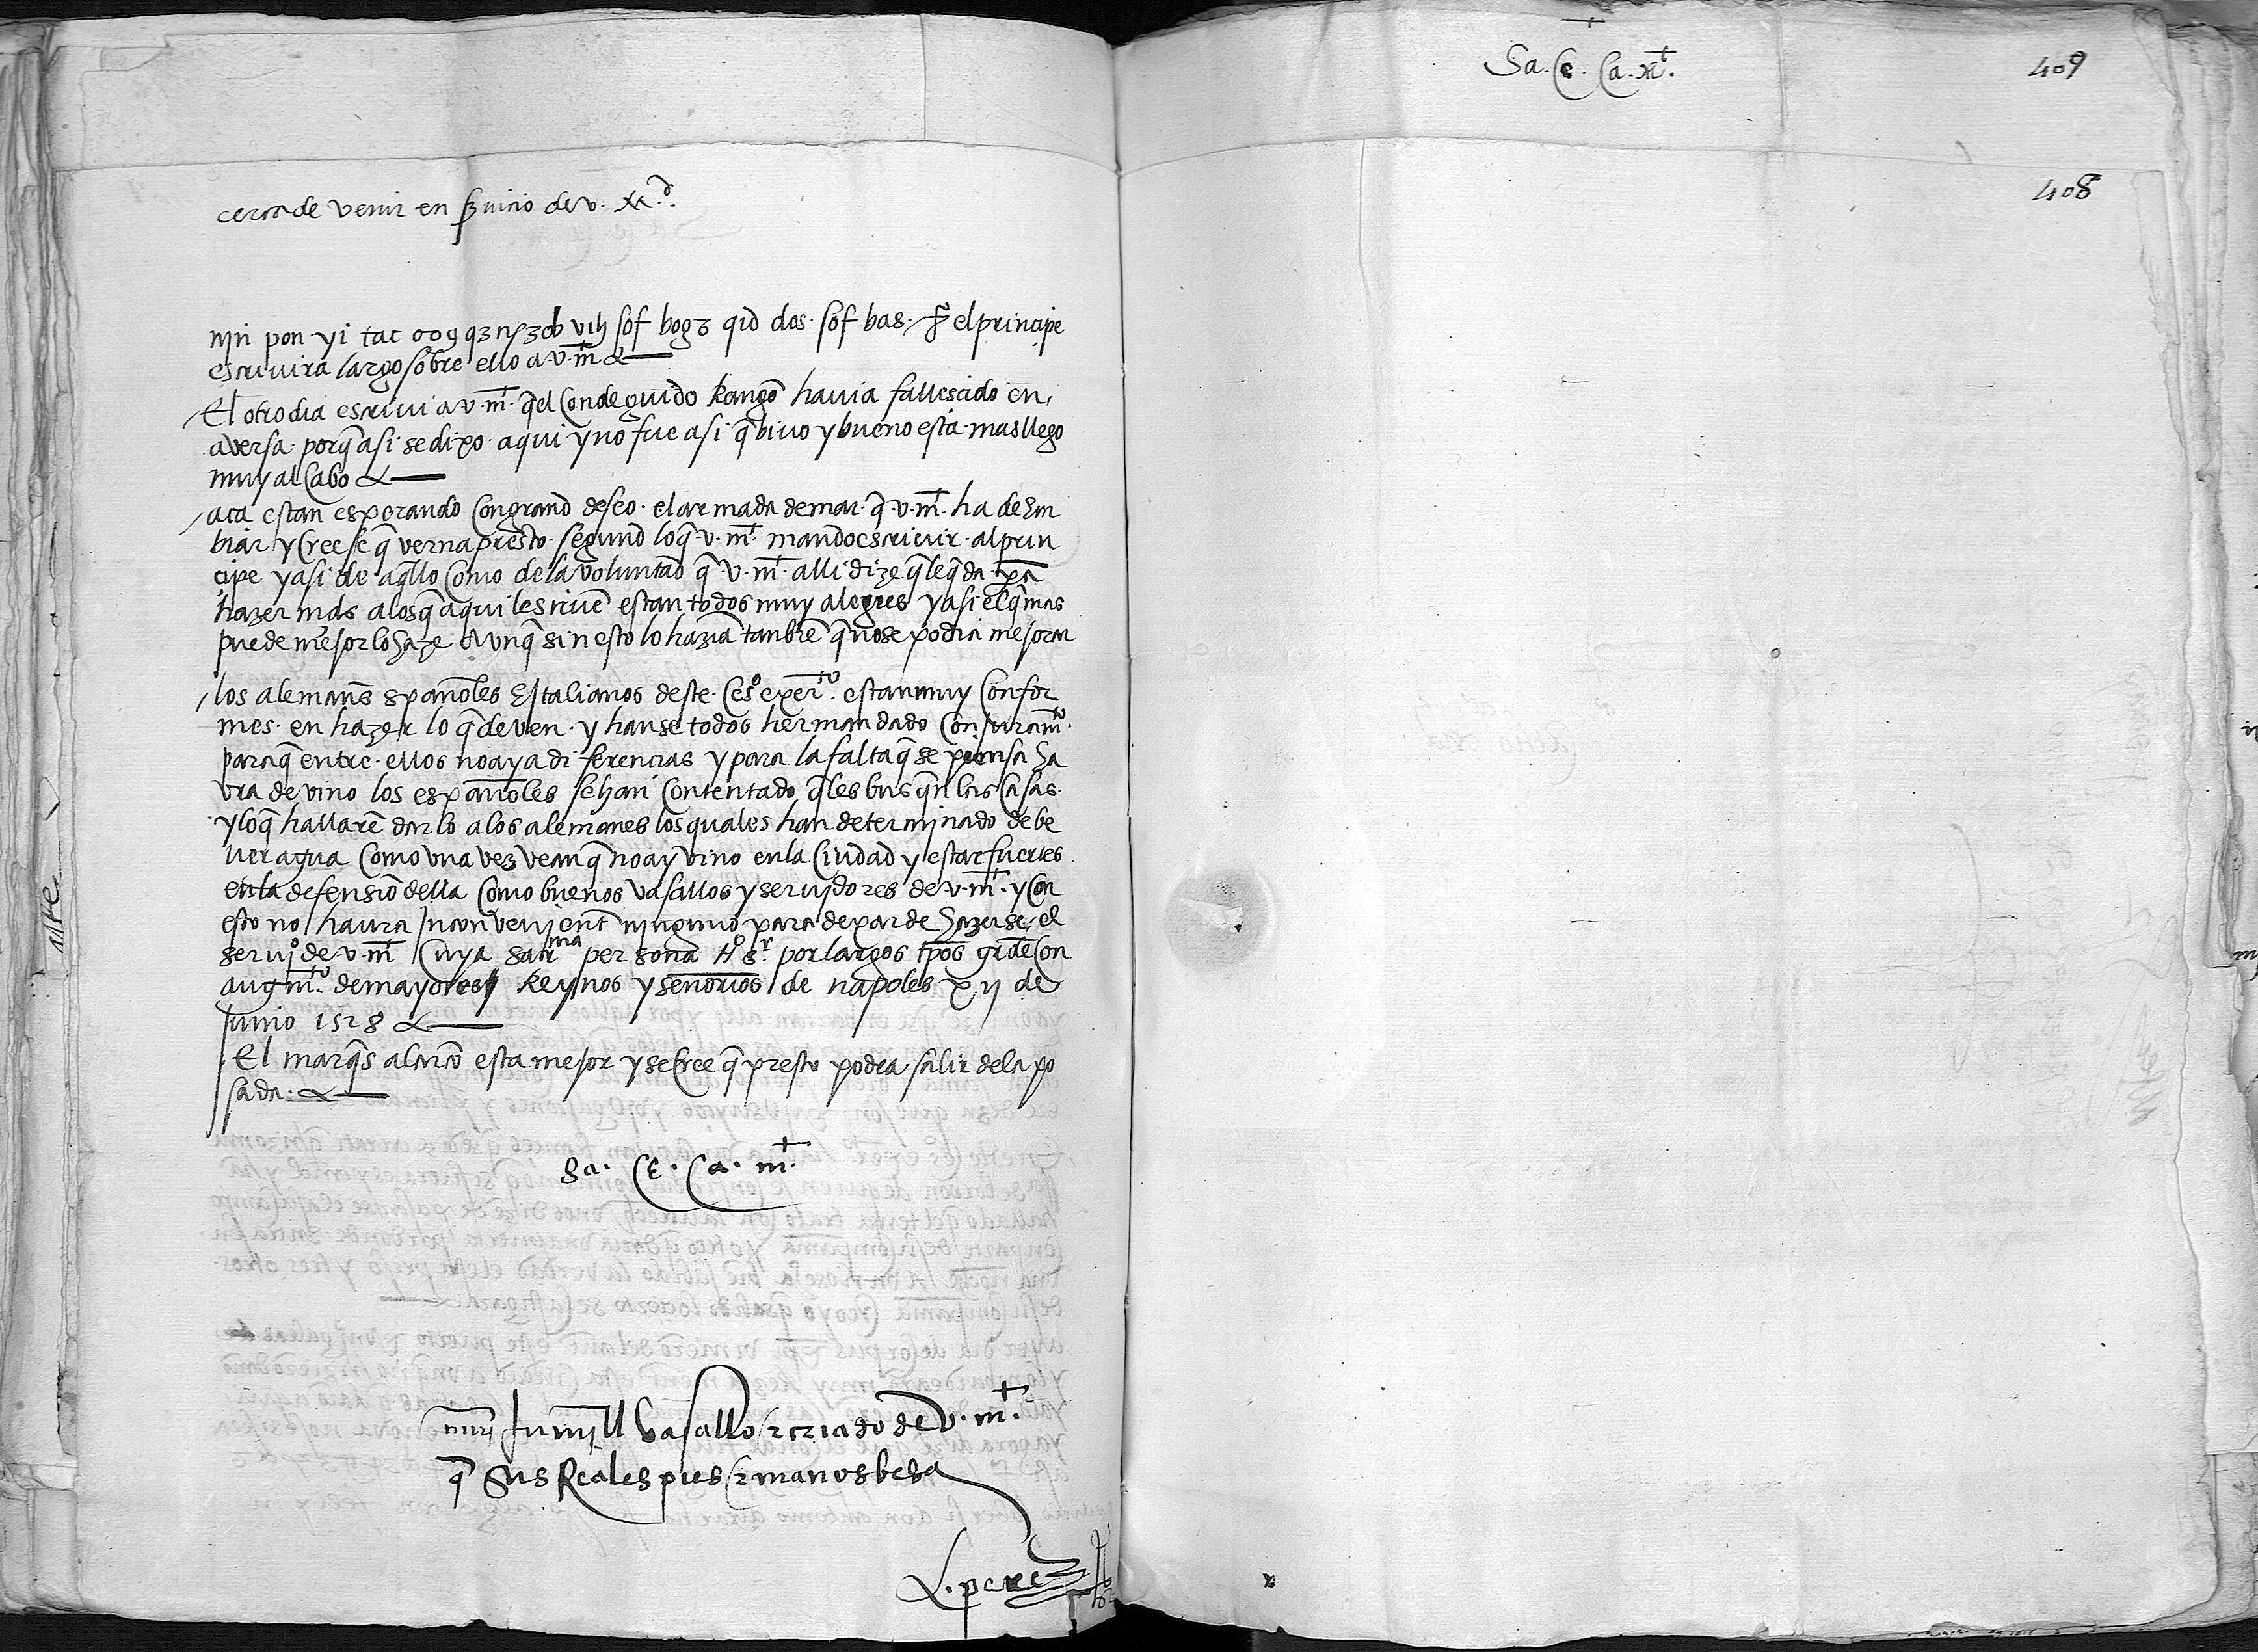 cerca de venir en servicio de v. M.d
nin pon yi tac sof dos. sof bas. el principe
escrivira largo sobre ello a v. mt &
El otro dia escrivi a v. mt. q̄l Conde guido Rangō havia fallescido en
aversa. porq̄ asi se dixo. aqui y no fue asi q̄ bivo y bueno esta. mas llego
muy al Cabo &
aca estan esperando Con grand deseo. el armada de mar. q̄. v. mt. ha de Em
biar y Creese q̄ verna presto. segund lo q̄. v. mt. mando escrivir. al prin
cipe y asi de aq̄llo Como de la voluntad q̄ v. mt. alli dize q̄ le q̄da pa
hazer mds a los q̄ aqui le sirvē estan todos muy alegres y asi el q̄ mas
puede mejor lo haze Avnq̄ sin esto lo haziā tanbiē q̄ no se podia mejorar
los alemans españoles E Italianos deste. Ceso exerto. estan muy Confor
mes. en hazer lo q̄ deven. y hanse todos hermandado Con juramto.
para q̄ entre. ellos no aya diferencias y para la falta q̄ se piensa ha
vra de vino los españoles se han Contentado q̄ les busq̄n las Casas.
y lo q̄ hallarē darlo a los alemanes los quales han determinado de be
ver agua Como vna vez vean q̄ no ay vino en la Ciudad y estar fuertes
en la defensiō della Como buenos vasallos y servidores de v. mt. y Con
esto no havra Inconvenient ninguno para dexar de hazerse. el
servio de. v. mt Cuya sacrma persona Nro Sr. por largos tpos grde Con
augmto. de mayores Reynos y señorios de napoles xij de
Junio 1528 &
El marq̄s alarcō esta mejor y se Cree q̄ presto podra. salir dela po
sada. &
Sa. Ce. Ca. mt.
muy humill vasallo e criado de v. mt.
q̄ Sus Reales pies e manos besa
L. perez
Sa. Ce. Ca. Mt.
409
408